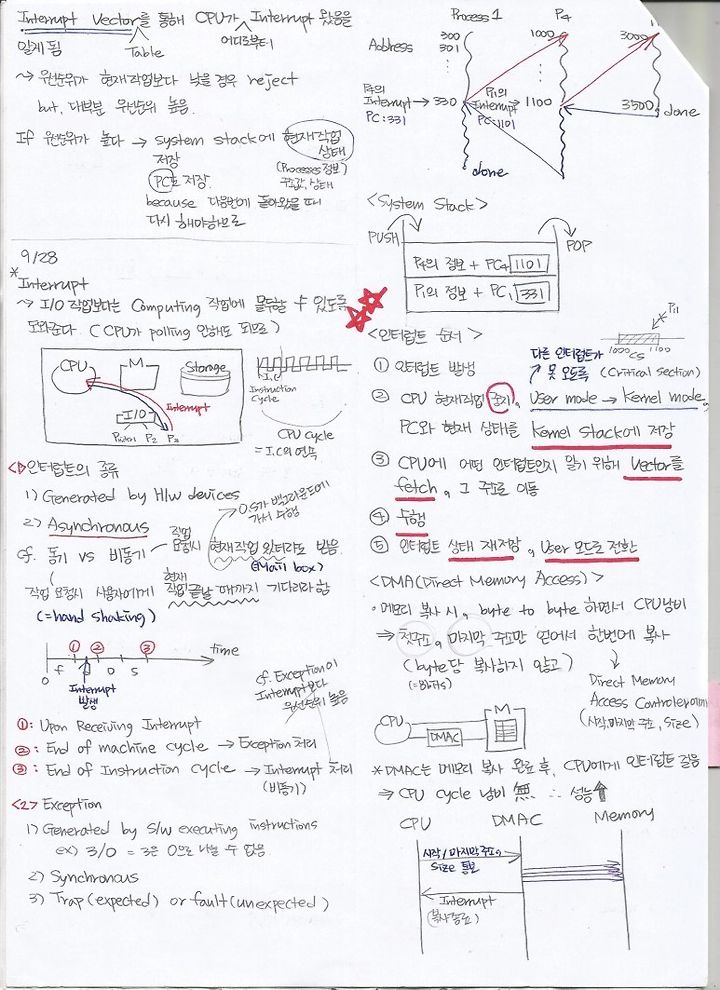 Interrupt Vector를 통해 CPU가 Interrupt 왔음을
알게 됨 Table 어디로부터
~> 우선순위가 현재작업보다 낮을 경우 reject
but, 대부분 우선순위 높음.
If 우선순위가 높다 → system stack에 현재작업 상태
저장 (Processes 정보)
PC도 저장. 주소값, 상태
because 다음번에 돌아왔을 때
다시 해야하므로
9/28
* Interrupt
~> I/O 작업보다는 Computing 작업에 몰두할 수 있도록
도와준다. (CPU가 polling 안해도 되므로)
CPU M Storage
Interrupt
I/O
P2 P3
I.C
Instruction
Cycle
CPU cycle
= I.C의 연속
<1>인터럽트의 종류
1) Generated by H/w devices
2) Asynchronous
O.S가 백그라운드에
가서 수행
cf. 동기 vs 비동기 작업 요청시 현재작업 있더라도 받음.
(Mail box)
작업 요청시 사용자에게 현재 작업끝날 때까지 기다리라 함
(=hand shaking)
① ② ③ time
0 f D O S
Interrupt
발생
cf. Exception이
Interrupt보다
우선순위 높음
①: Upon Receiving Interrupt
②: End of machine cycle → Exception 처리
③: End of Instruction cycle → Interrupt 처리
(비동기)
<2> Exception
1) Generated by S/w executing instructions
ex) 3/0 = 3은 0으로 나눌 수 없음
2) Synchronous
3) Trap (expected) or fault (unexpected)
Process 1 P4
Address 300 1000 3000
301
P4의 P11의
Interrupt → 330 Interrupt → 1100 3500 done
PC:331 PC:1101
done
<System Stack>
PUSH POP
P4의 정보 + PC4 1101
P1의 정보 + PC1 331
<인터럽트 순서>
P11
1000 CS 1100
(Critical section)
다른 인터럽트가
못 오도록
① 인터럽트 발생
② CPU 현재작업 중지, User mode → Kernel mode,
PC와 현재 상태를 Kernel Stack에 저장
③ CPU에 어떤 인터럽트인지 알기 위해 Vector를
fetch, 그 주소로 이동
④ 수행
⑤ 인터럽트 상태 재저장, User 모드로 전환
<DMA(Direct Memory Access)>
· 메모리 복사 시, byte to byte 하면서 CPU낭비
⇒ 첫주소, 마지막 주소만 얻어서 한번에 복사
(byte당 복사하지 않고)
(=8bits)
Direct Memory
Access Controler
(시작,마지막 주소, Size)
CPU DMAC M
* DMAC는 메모리 복사 완료 후, CPU에게 인터럽트 걸음
⇒ CPU cycle 낭비 無 ∴ 성능↑
CPU DMAC Memory
시작/마지막 주소,
Size 통보
Interrupt
(복사종료)